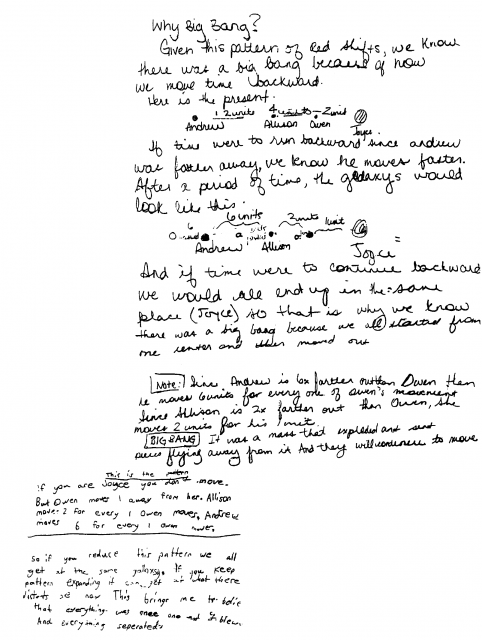 Why Big Bang?
Given this pattern of red shifts, we know
there was a big bang because of how
we move time backward.
Here is the present.
12 units 4 units 2 unit
Andrew Allison Owen Joyce
If time were to run backward since andrew
was farther away, we know he moves faster.
After a period of time, the galaxys would
look like this.
6 units 2 units 1 unit
Andrew Allison Joyce =
And if time were to continue backward
we would all end up in the same
place (Joyce) so that is why we know
there was a big bang because we all started from
one center and then moved out
Note: Since Andrew is 6x farther out than Owen then
he moves 6 units for every one of owen's movement
Since Allison is 2x farther out then Owen, she
moves 2 units for his 1 unit.
BIG BANG It was a mass that exploded and sent
pieces flying away from it And they will continue to move
This is the pattern
if you are Joyce you don't move.
But Owen moves 1 away from her. Allison
moves 2 for every 1 Owen moves, Andrew
moves 6 for every 1 owen moves.
So if you reduce this pattern we all
get at the same If you keep
pattern expanding it get at what there
now This brings me to
that everything was once one
And everything seperated